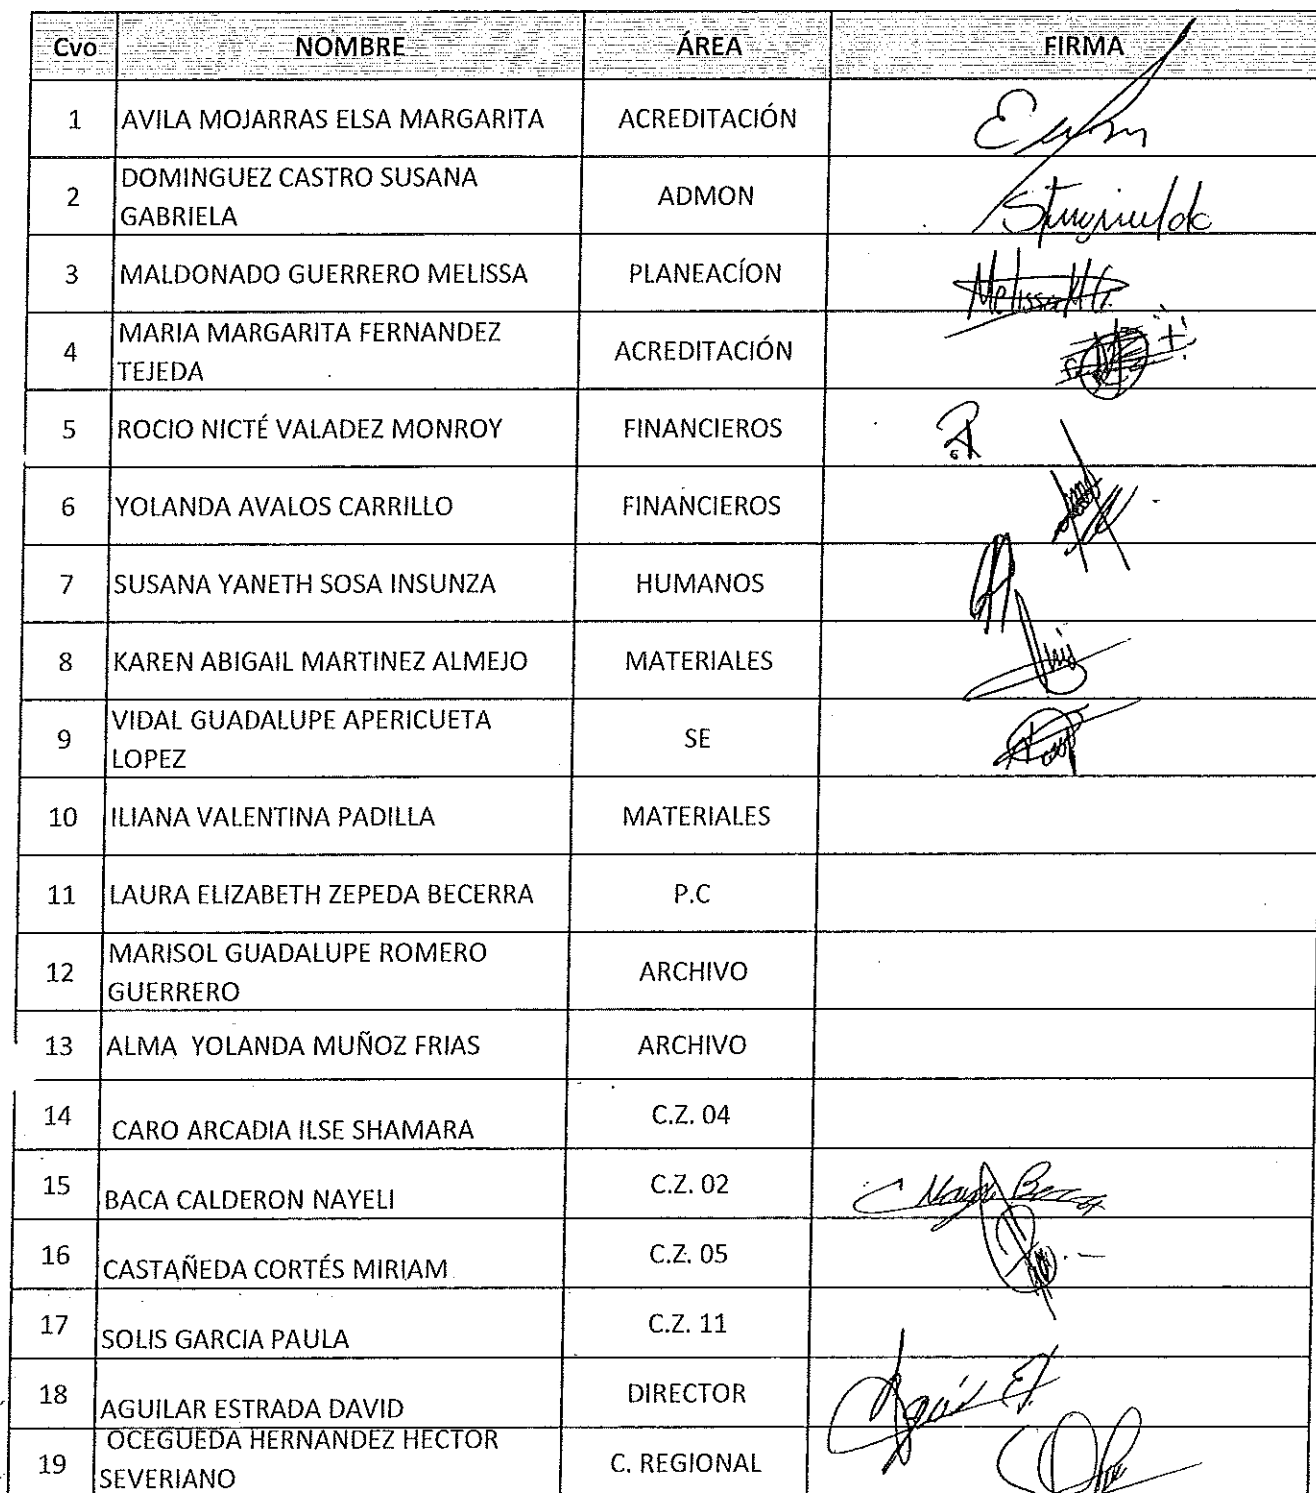 Cvo NOMBRE ÁREA FIRMA
1 AVILA MOJARRAS ELSA MARGARITA ACREDITACIÓN
2 DOMINGUEZ CASTRO SUSANA
GABRIELA ADMON
3 MALDONADO GUERRERO MELISSA PLANEACÍON Melissa M G.
4 MARIA MARGARITA FERNANDEZ
TEJEDA ACREDITACIÓN
5 ROCIO NICTÉ VALADEZ MONROY FINANCIEROS
6 YOLANDA AVALOS CARRILLO FINANCIEROS
7 SUSANA YANETH SOSA INSUNZA HUMANOS
8 KAREN ABIGAIL MARTINEZ ALMEJO MATERIALES
9 VIDAL GUADALUPE APERICUETA
LOPEZ SE
10 ILIANA VALENTINA PADILLA MATERIALES
11 LAURA ELIZABETH ZEPEDA BECERRA P.C
12 MARISOL GUADALUPE ROMERO
GUERRERO ARCHIVO
13 ALMA YOLANDA MUÑOZ FRIAS ARCHIVO
14 CARO ARCADIA ILSE SHAMARA C.Z. 04
15 BACA CALDERON NAYELI C.Z. 02
16 CASTAÑEDA CORTÉS MIRIAM C.Z. 05
17 SOLIS GARCIA PAULA C.Z. 11
18 AGUILAR ESTRADA DAVID DIRECTOR
19 OCEGUEDA HERNANDEZ HECTOR
SEVERIANO C. REGIONAL